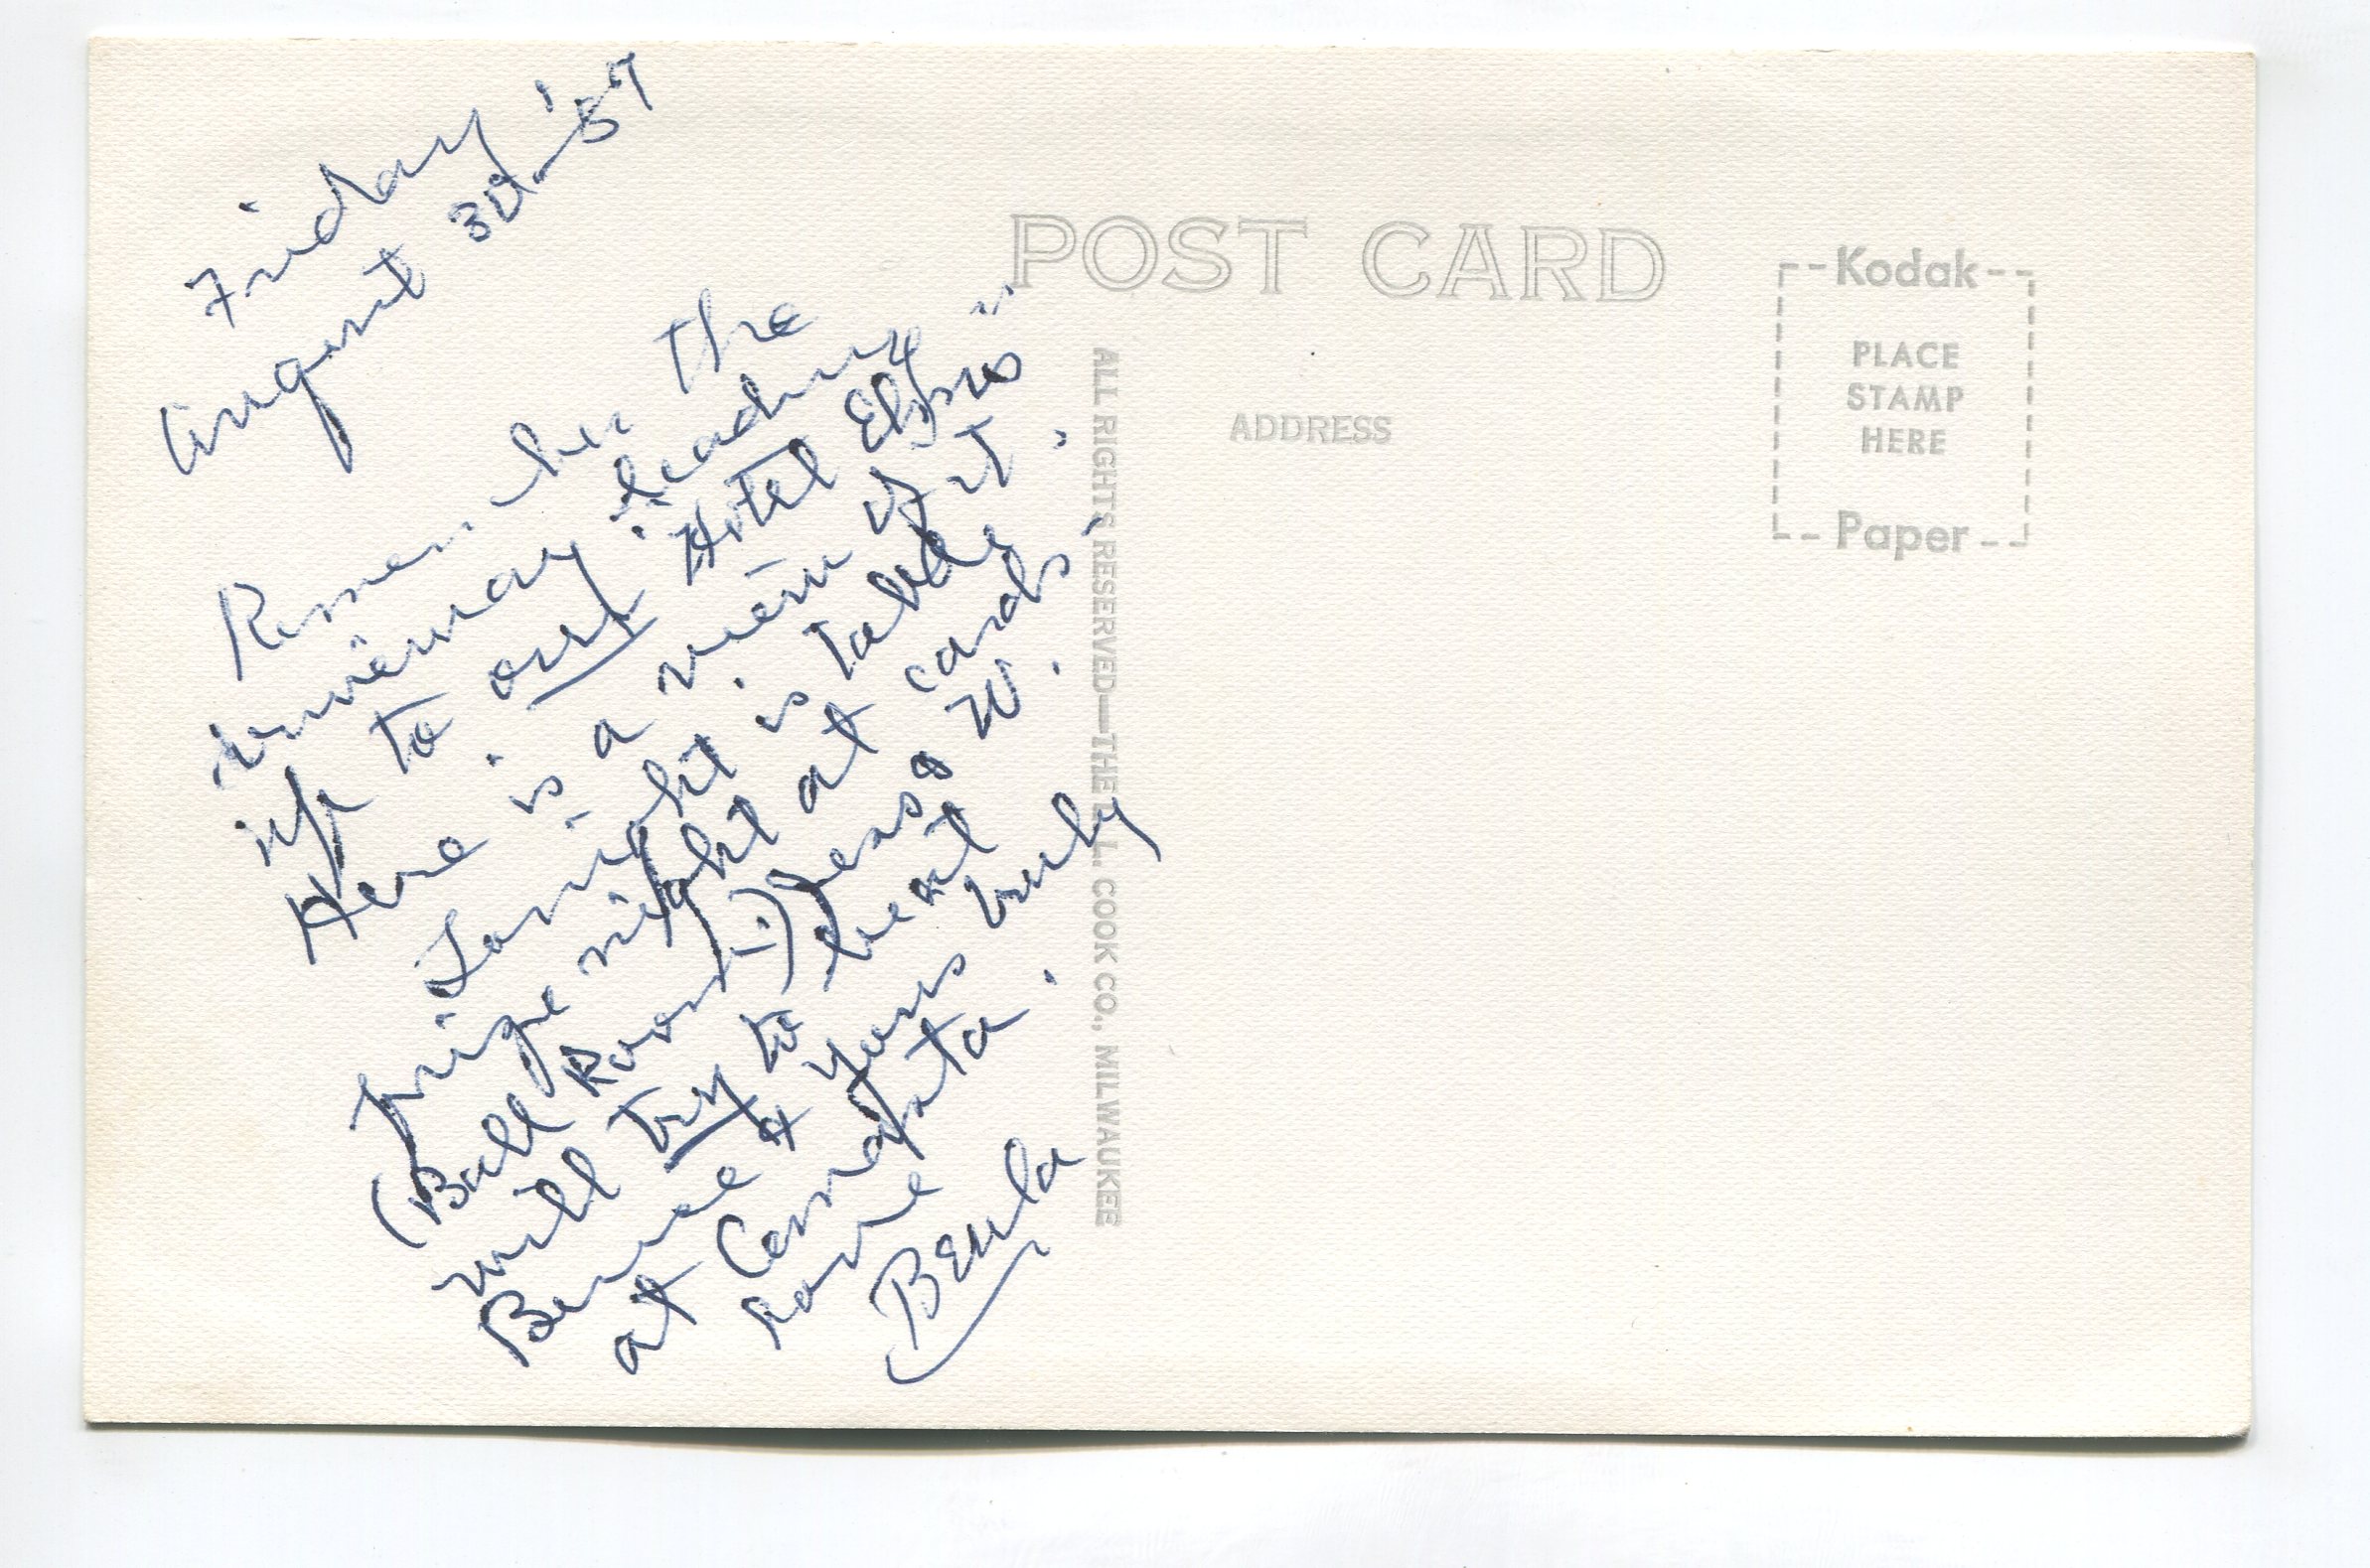 Friday
August 30 - '57
Remember the
driveway leading
up to our Hotel Elsinore"
Here is a view of it.
Tonight is Table
prize night at cards
(Ball Room!) Jenss & W.
will try to beat
Bernice & yours truly
at Canasta.
Love
Beula
POST CARD
ADDRESS
Kodak
PLACE
STAMP
HERE
Paper
ALL RIGHTS RESERVED—THE L. L. COOK CO., MILWAUKEE